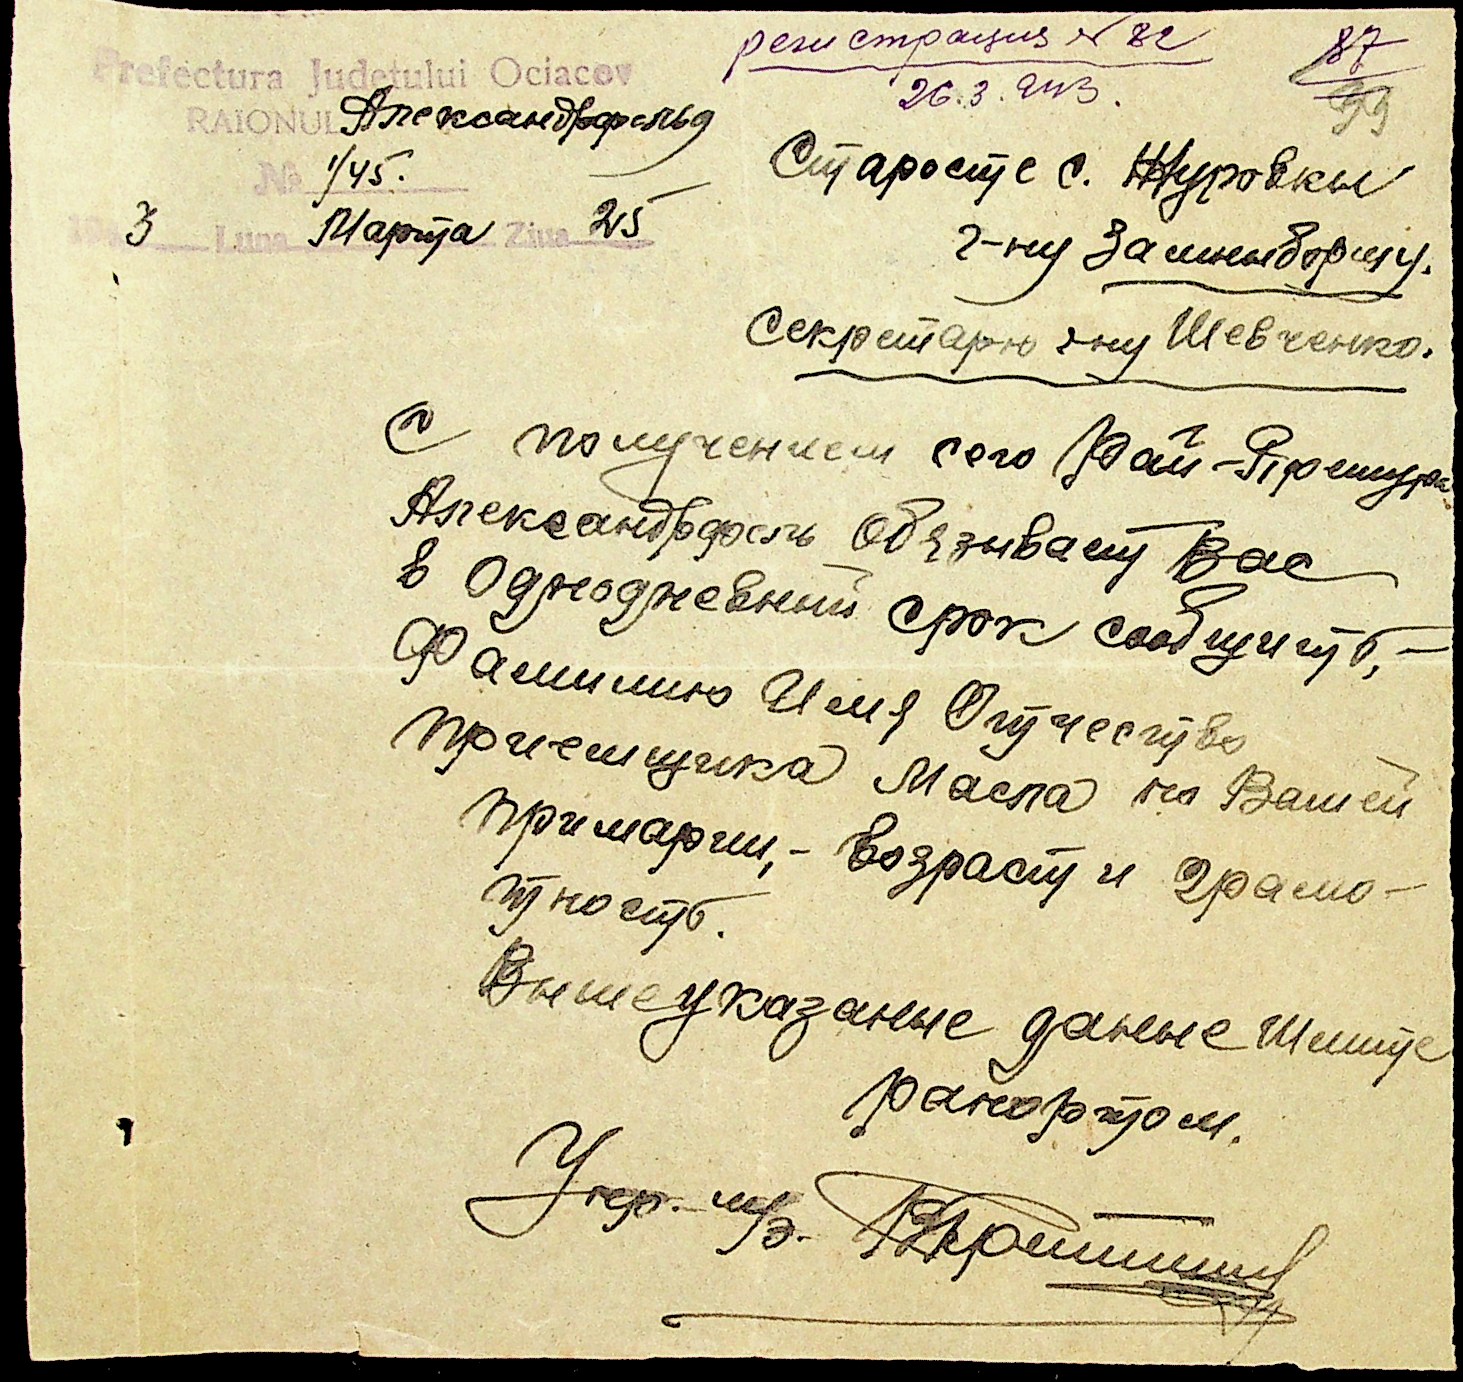 регистрация № 82
26.3.943.
87
99
Prefectura Judeţului Ociacov
RAIONUL Александрфельд
№ 1/45.
194 3 Luna Марта Ziua 25
Старосте с. Журовки
г-ну Замниборщу.
Секретарю г-ну Шевченко.
С получением сего Рай-Претура
Александрфель Обязывает Вас
в Однодневный срок сообщить, –
Фамилию Имя Отчество
приемщика Масла по Вашей
примарии, – возраст и грамо-
тность.
Вышеуказаные даные Шлите
рапортом.